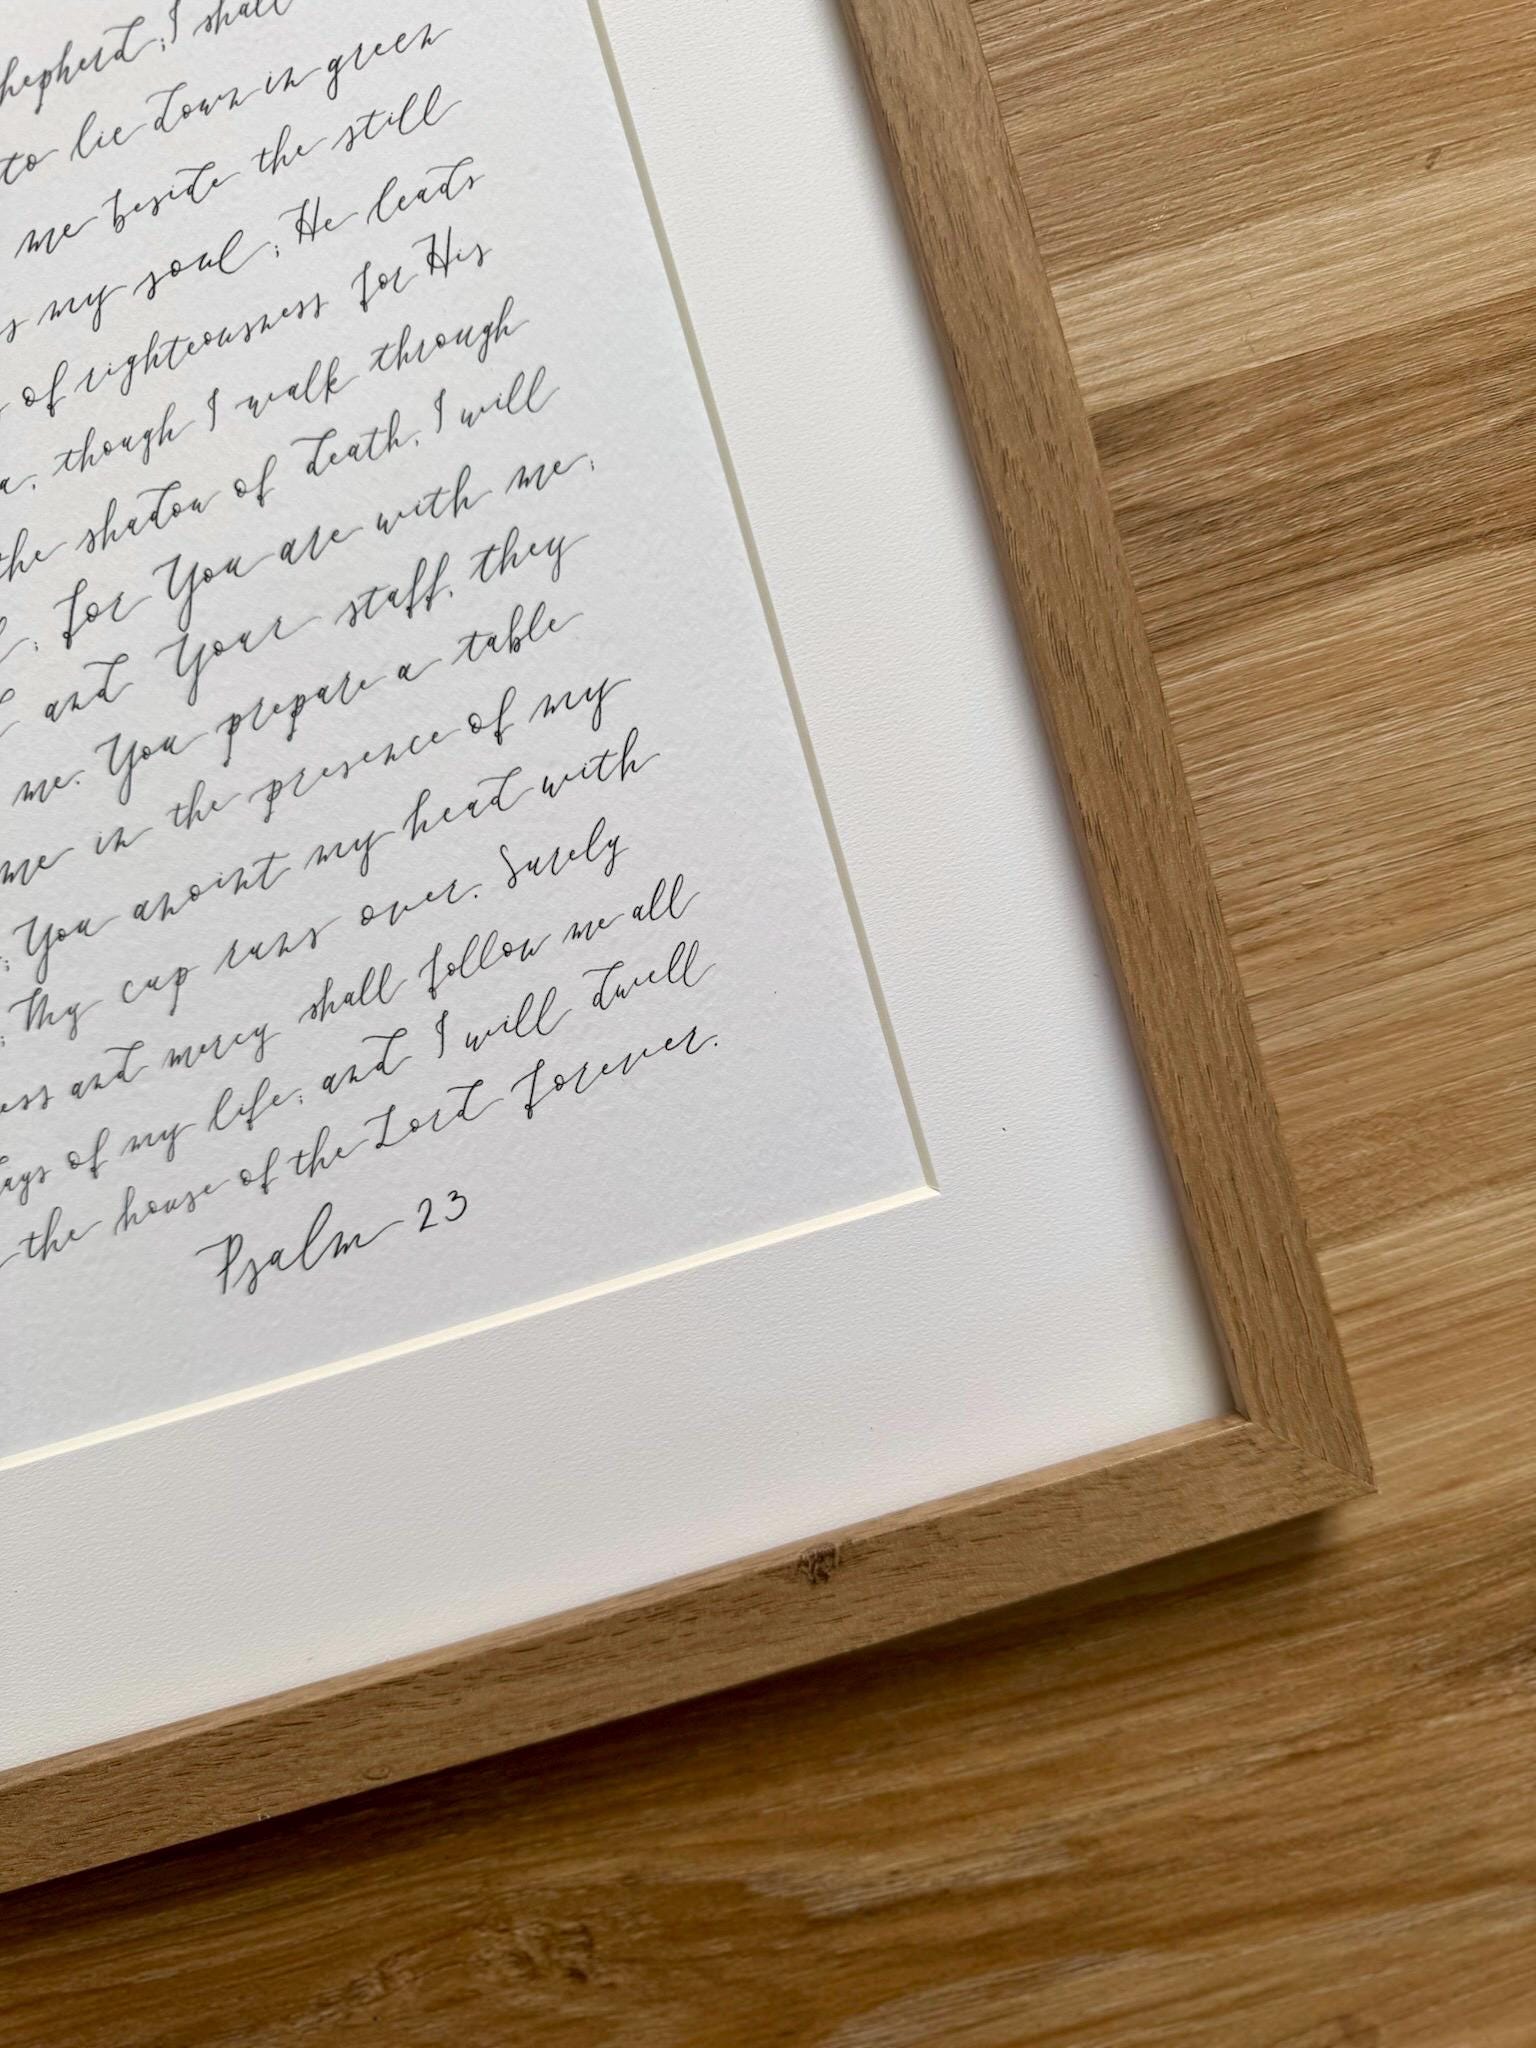 shepherd; I shall
to lie down in green
me beside the still
s my soul; He leads
of righteousness for His
a, though I walk through
the shadow of death, I will
; for You are with me;
and Your staff, they
me. You prepare a table
me in the presence of my
; You anoint my head with
; My cup runs over. Surely
ess and mercy shall follow me all
days of my life; and I will dwell
the house of the Lord forever.
Psalm 23